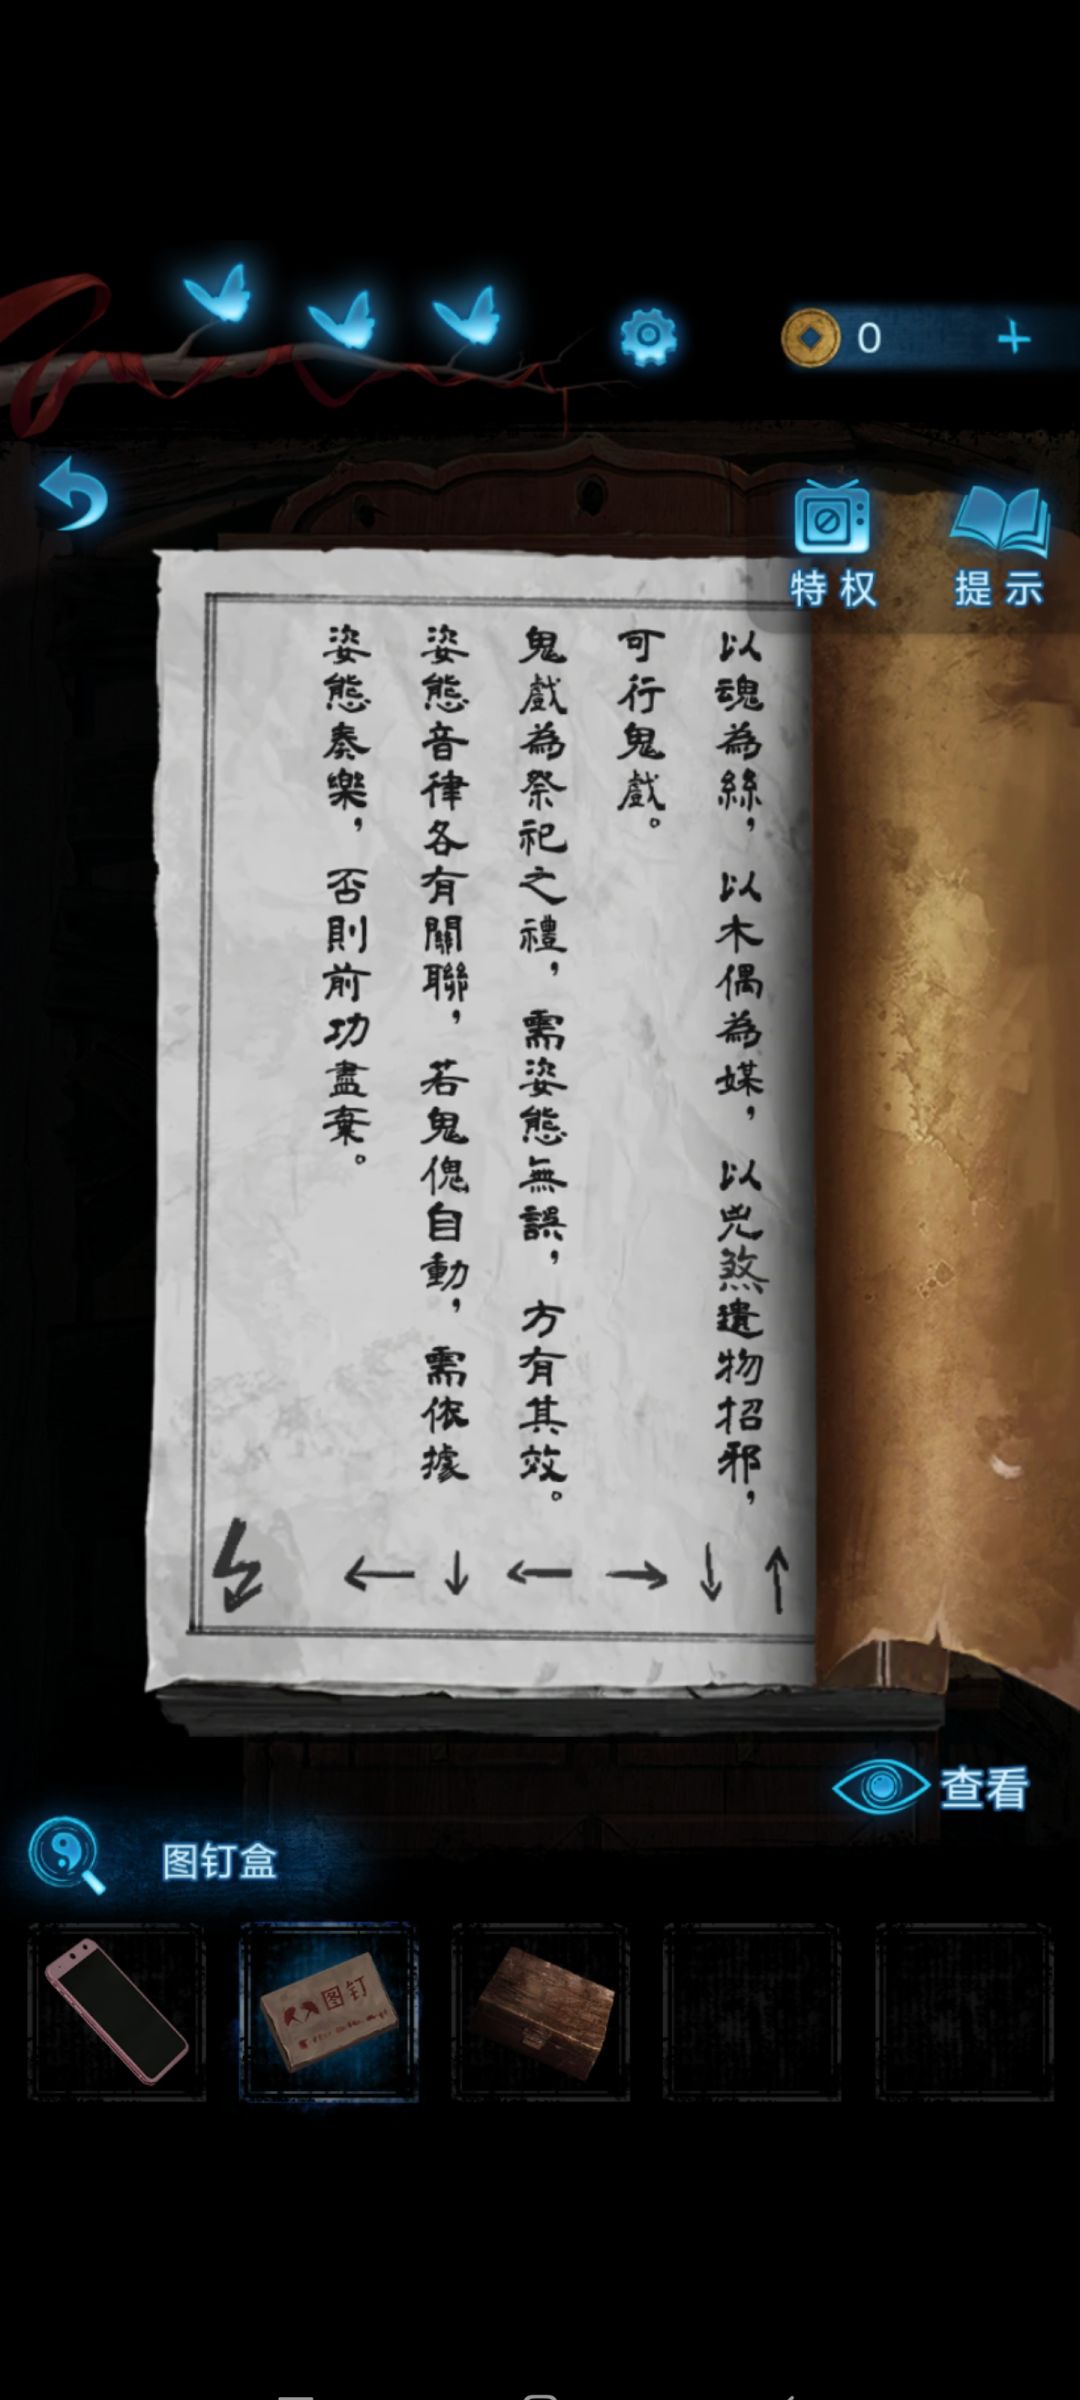 0
特权
提示
以魂為絲，以木偶為媒，以兇煞遺物招邪，
可行鬼戲。
鬼戲為祭祀之禮，需姿態無誤，方有其效。
姿態音律各有關聯，若鬼傀自動，需依據
姿態奏樂，否則前功盡棄。
↑ ↓ → ← ↓ ←
查看
图钉盒
图钉